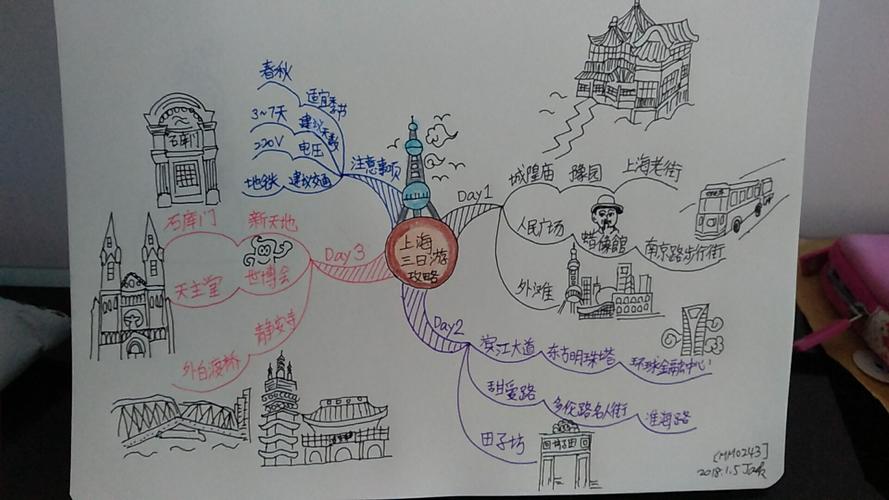 上海
三日游
攻略
注意事项
春秋
适宜季节
3~7天
建议天数
220V
电压
地铁
建议交通
Day1
城隍庙
豫园
上海老街
人民广场
蜡像館
南京路步行街
外滩
Day2
滨江大道
东方明珠塔
环球金融中心
甜爱路
多伦路名人街
淮海路
田子坊
Day3
新天地
石库门
世博会
天主堂
静安寺
外白渡桥
石库门
[MM0243]
2018.1.5 Jack